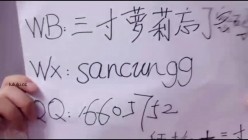 WB:三寸萝莉忘了
Wx:sancungg
QQ:16605752